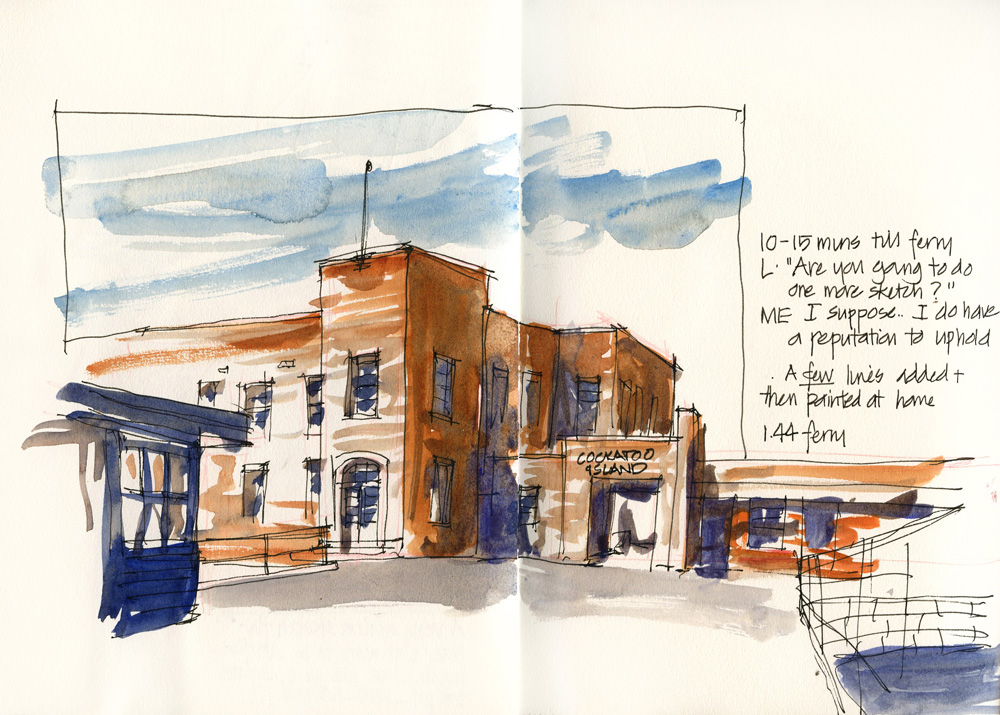 COCKATOO
ISLAND
10-15 mins till ferry
L. "Are you going to do
one more sketch?"
ME I suppose.. I do have
a reputation to uphold
. A few lines added +
then painted at home
1.44 ferry